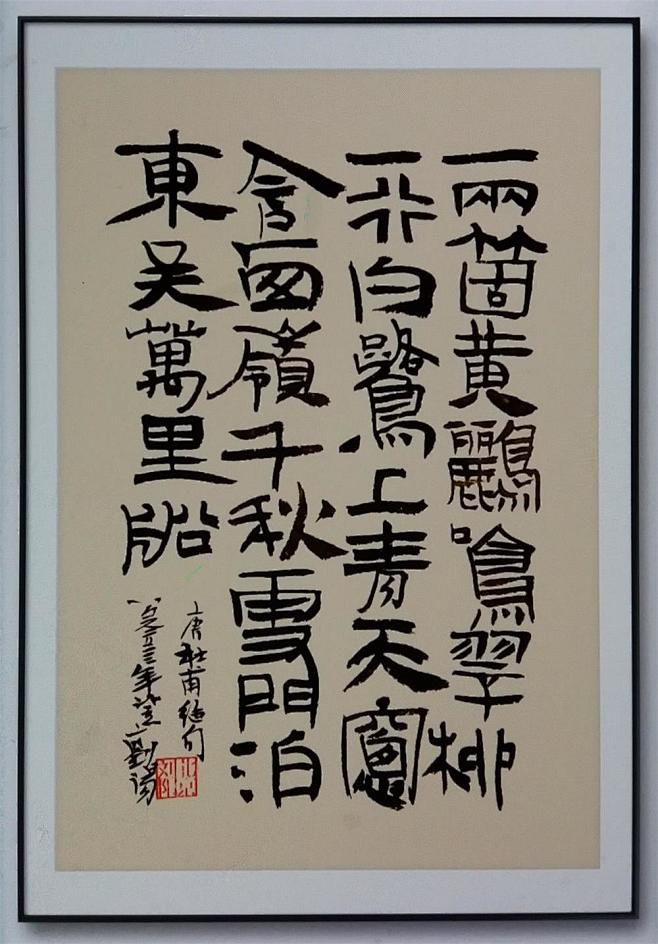 兩箇黃鸝鳴翠柳
一行白鷺上青天窻
含西嶺千秋雪門泊
東吳萬里船
唐杜甫絕句